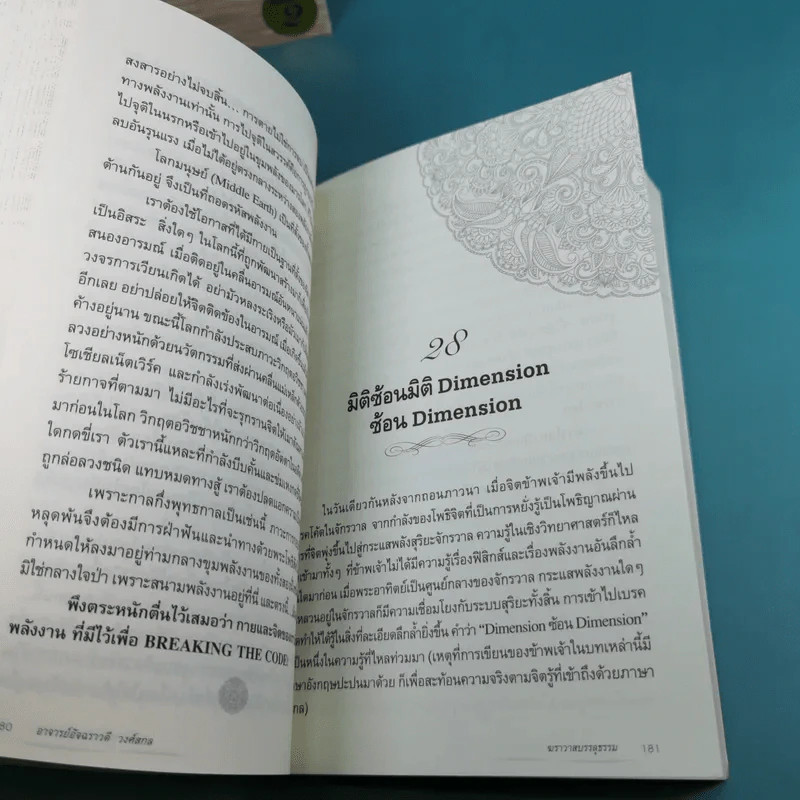 สงสารอย่างไม่จบสิ้น... การตายไม่ใช่การ
ทางพลังงานเท่านั้น การไปจุติในสวรรค์
ไปจุติในนรกหรือเข้าไปอยู่ในขุมพลัง
ลบอันรุนแรง เมื่อไม่ได้อยู่ตรงกลางระหว่าง
โลกมนุษย์ (Middle Earth) เป็นที่
ด้านกันอยู่ จึงเป็นที่ถอดรหัสพลังงาน
เราต้องใช้โอกาสที่ได้มีกายเป็นฐานที่ตั้ง
เป็นอิสระ สิ่งใดๆ ในโลกนี้ที่ถูกพัฒนาสร้าง
สนองอารมณ์ เมื่อติดอยู่ในคลื่นอารมณ์อัน
วงจรการเวียนเกิดได้ อย่ามัวหลงระเริงหรือ
อีกเลย อย่าปล่อยให้จิตติดข้องในอารมณ์
ค้างอยู่นาน ขณะนี้โลกกำลังประสบภาวะวิกฤต
ลวงอย่างหนักด้วยนวัตกรรมที่ส่งผ่านคลื่นแม่เหล็ก
โซเชียลเน็ตเวิร์ค และกำลังเร่งพัฒนาต่อเนื่องอย่าง
ร้ายกาจที่ตามมา ไม่มีอะไรที่จะรุกรานจิตให้เมา
มาก่อนในโลก วิกฤตอวิชชาหนักกว่าวิกฤต
ใดกดขี่เรา ตัวเรานี้แหละที่กำลังบีบคั้นและข่มเหง
ถูกล่อลวงชนิด แทบหมดทางสู้ เราต้องปลดแอก
เพราะกาลกึ่งพุทธกาลเป็นเช่นนี้ ภาวะการ
หลุดพ้นจึงต้องมีการฝ่าฟันและนำทางด้วยพระโพธิ
กำหนดให้ลงมาอยู่ท่ามกลางขุมพลังงานของทั้งสอง
มิใช่กลางใจป่า เพราะสนามพลังงานอยู่ที่นี่ และตรงนี้
พึงตระหนักตื่นไว้เสมอว่า กายและจิตของ
พลังงาน ที่มีไว้เพื่อ BREAKING THE CODE
80 อาจารย์อัจฉราวดี วงศ์สกล
28
มิติซ้อนมิติ Dimension
ซ้อน Dimension
ในวันเดียวกันหลังจากถอนภาวนา เมื่อจิตข้าพเจ้ามีพลังขึ้นไป
รคโค้ดในจักรวาล จากกำลังของโพธิจิตที่เป็นการหยั่งรู้เป็นโพธิญาณผ่าน
รที่จิตพุ่งขึ้นไปสู่กระแสพลังสุริยะจักรวาล ความรู้ในเชิงวิทยาศาสตร์ก็ไหล
เข้ามาทั้งๆ ที่ข้าพเจ้าไม่ได้มีความรู้เรื่องฟิสิกส์และเรื่องพลังงานอันลึกล้ำ
ใดมาก่อน เมื่อพระอาทิตย์เป็นศูนย์กลางของจักรวาล กระแสพลังงานใดๆ
หลวนอยู่ในจักรวาลก็มีความเชื่อมโยงกับระบบสุริยะทั้งสิ้น การเข้าไปเบรค
ดทำให้ได้รู้ในสิ่งที่ละเอียดลึกล้ำยิ่งขึ้น คำว่า “Dimension ซ้อน Dimension”
เป็นหนึ่งในความรู้ที่ไหลท่วมมา (เหตุที่การเขียนของข้าพเจ้าในบทเหล่านี้มี
าษาอังกฤษปะปนมาด้วย ก็เพื่อสะท้อนความจริงตามจิตรู้ที่เข้าถึงด้วยภาษา
กล)
ฆราวาสบรรลุธรรม 181